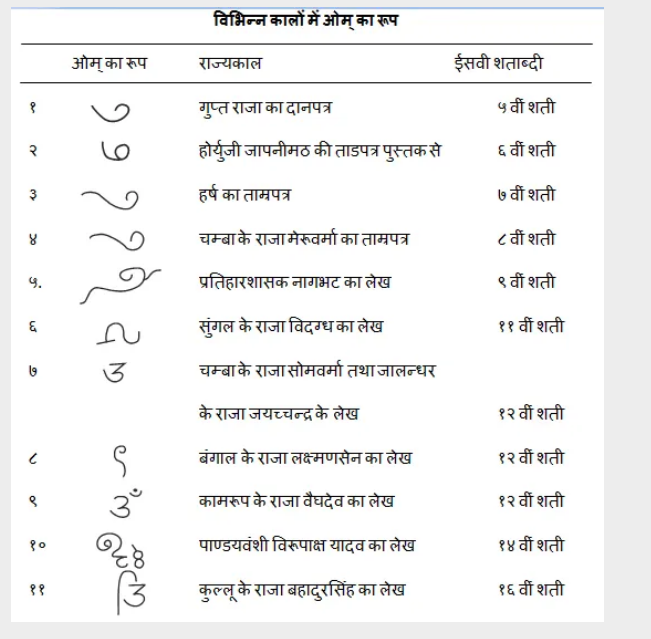 विभिन्न कालों में ओम् का रूप
ओम् का रूप राज्यकाल ईसवी शताब्दी
१ गुप्त राजा का दानपत्र ५ वीं शती
२ होर्युजी जापनीमठ की ताडपत्र पुस्तक से ६ वीं शती
३ हर्ष का ताम्रपत्र ७ वीं शती
४ चम्बा के राजा मेरूवर्मा का ताम्रपत्र ८ वीं शती
५. प्रतिहारशासक नागभट का लेख ९ वीं शती
६ सुंगल के राजा विदग्ध का लेख ११ वीं शती
७ उ चम्बा के राजा सोमवर्मा तथा जालन्धर
के राजा जयच्चन्द्र के लेख १२ वीं शती
८ बंगाल के राजा लक्ष्मणसेन का लेख १२ वीं शती
९ कामरूप के राजा वैघदेव का लेख १२ वीं शती
१० पाण्डयवंशी विरूपाक्ष यादव का लेख १४ वीं शती
११ कुल्लू के राजा बहादुरसिंह का लेख १६ वीं शती